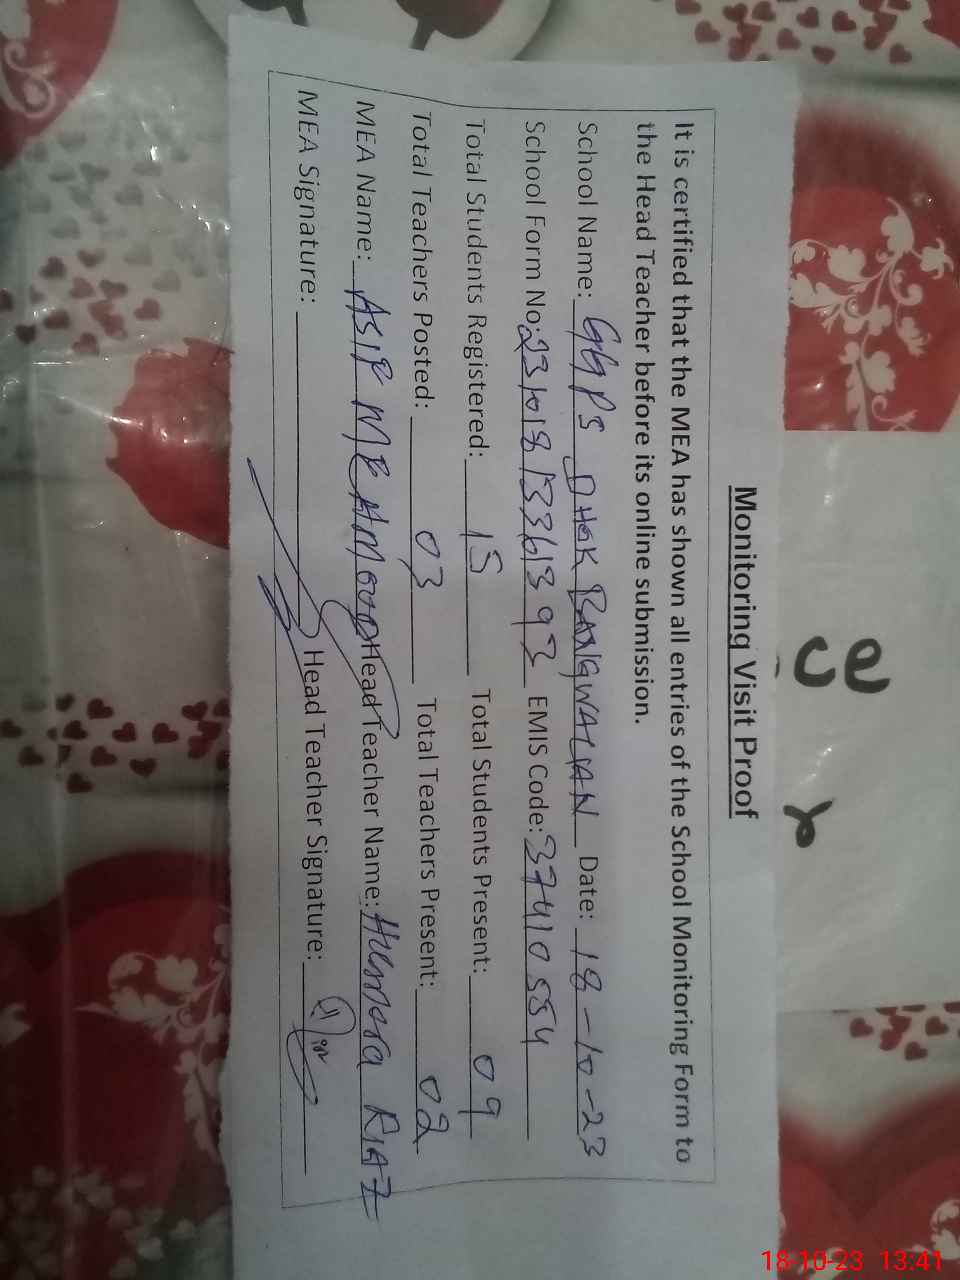 Monitoring Visit Proof
It is certified that the MEA has shown all entries of the School Monitoring Form to
the Head Teacher before its online submission.
School Name: GGPS DHOK RANGWALIAN Date: 18-10-23
School Form No: 23101813361393 EMIS Code: 37410554
Total Students Registered: 15 Total Students Present: 09
Total Teachers Posted: 03 Total Teachers Present: 02
MEA Name: ASIF MEHMOOD Head Teacher Name: Humera RIAZ
MEA Signature: Head Teacher Signature:
18-10-23 13:41